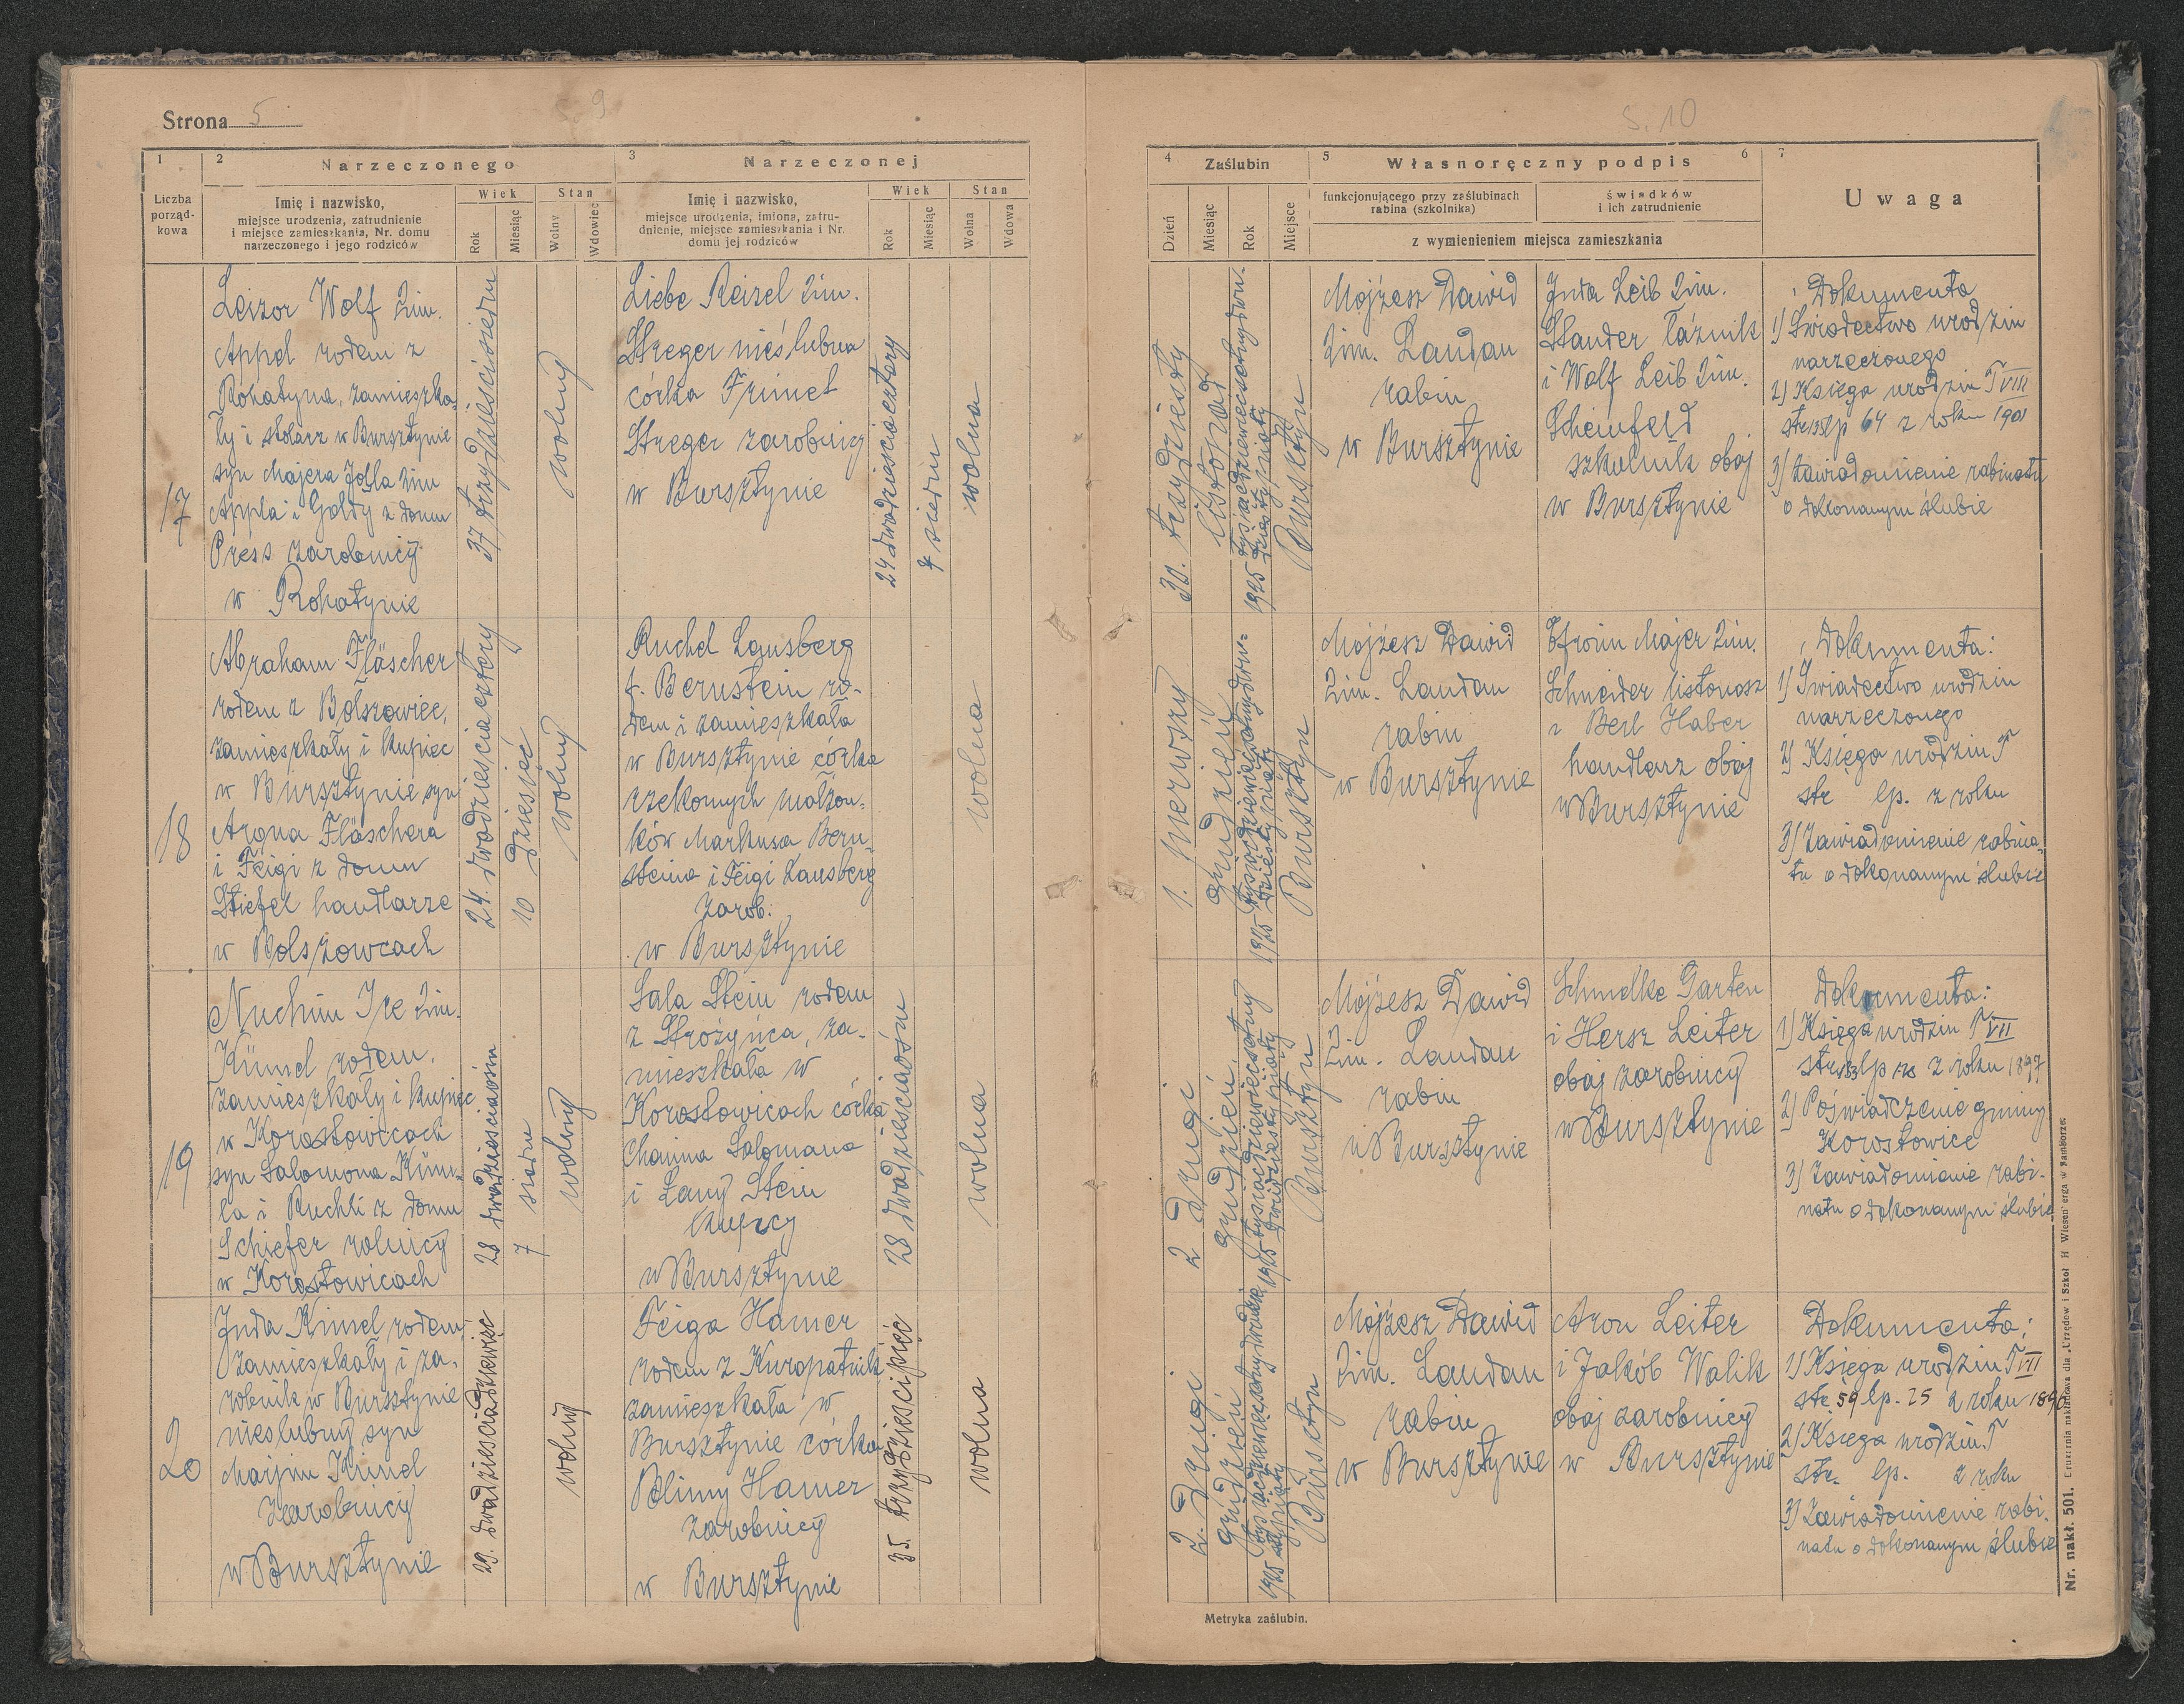 Strona 5
S. 9
1
2
Narzeczonego
3
Narzeczonej
Liczba
porząd-
kowa
Imię i nazwisko,
miejsce urodzenia, zatrudnienie
i miejsce zamieszkania, Nr. domu
narzeczonego i jego rodziców
Wiek
Stan
Rok
Miesiąc
Wolny
Wdowiec
Imię i nazwisko,
miejsce urodzenia, imiona, zatru-
dnienie, miejsce zamieszkania i Nr.
domu jej rodziców
Wiek
Stan
Rok
Miesiąc
Wolna
Wdowa
17
Leizor Wolf 2im.
Appel rodem z
Rohatyna, zamieszka-
ły i stolarz w Bursztynie
syn Majera Josla 2im
Appla i Goldy z domu
Press zarobnicy
w Rohatynie
37 trzydzieściosiedm
wolny
Liebe Reizel 2im.
Streger nieślubna
córka Frimet
Streger zarobnicy
w Bursztynie
24 dwadzieściacztery
7 siedm
wolna
18
Abraham Fläscher
rodem z Bolszowiec,
zamieszkały i kupiec
w Bursztynie syn
Arona Fläschera
i Feigi z domu
Stiefel handlarze
w Bolszowcach
24. dwadzieściacztery
10 dziesięć
wolny
Ruchel Lansberg
f. Bernstein ro-
dem i zamieszkała
w Bursztynie córka
rzekomych małżon-
ków Markusa Bern-
steina i Feigi Lansberg
zarob.
w Bursztynie
wolna
19
Nuchim Ire 2im.
Kümel rodem,
zamieszkały i kupiec
w Korostowicach
syn Salomona Küm-
la i Ruchli z domu
Schiefer rolnicy
w Korostowicach
28 dwadzieściaośm
7 siedm
wolny
Sala Stein rodem
z Strożyńca, za-
mieszkała w
Korostowicach córka
Chaima Salomana
i Lany Stein
kupcy
w Bursztynie
28 dwadzieściaośm
wolna
20
Juda Kimel rodem,
zamieszkały i za-
robnik w Bursztynie
nieślubny syn
Marjem Kimel
zarobnicy
w Bursztynie
29. dwadzieściadziewięć
wolny
Feiga Hamer
rodem z Kuropatnik
zamieszkała w
Bursztynie córka
Blimy Hamer
zarobnicy
w Bursztynie
35. trzydzieścipięć
wolna
S. 10
4
Zaślubin
5
Własnoręczny podpis
6
7
Uwaga
Dzień
Miesiąc
Rok
Miejsce
funkcjonującego przy zaślubinach
rabina (szkolnika)
świadków
i ich zatrudnienie
z wymienieniem miejsca zamieszkania
30. trzydziesty
listopad
1925 tysiącdziewięćsetnydwu-
dziestypiąty
Bursztyn
Mojżesz Dawid
2im. Landau
rabin
w Bursztynie
Juda Leib 2im.
Stander łaźnik
i Wolf Leib 2im.
Scheinfeld
szkolnik obaj
w Bursztynie
Dokumenta
1) Świadectwo urodzin
narzeczonego
2) Księga urodzin T VIII
str 135 lp 64 z roku 1901
3) Zawiadomienie rabinatu
o dokonanym ślubie
1. pierwszy
grudzień
1925 tysiącdziewięćsetnydwu-
dziestypiąty
Bursztyn
Mojżesz Dawid
2im. Landau
rabin
w Bursztynie
Efroim Majer 2im.
Schneider listonosz
i Berl Haber
handlarz obaj
w Bursztynie
Dokumenta:
1) Świadectwo urodzin
narzeczonego
2) Księga urodzin T
str lp. z roku
3) Zawiadomienie rabina-
tu o dokonanym ślubie
2 drugi
grudzień
1925 tysiącdziewięćsetny
dwudziestypiąty
Bursztyn
Mojżesz Dawid
2im. Landau
rabin
w Bursztynie
Schmelke Garten
i Hersz Leiter
obaj zarobnicy
w Bursztynie
Dokumenta:
1) Księga urodzin T VII
str 183 lp 178 z roku 1897
2) Poświadczenie gminy
Korostowice
3) Zawiadomienie rabi-
natu o dokonanym ślubie
2. drugi
grudzień
1925 tysiącdziewięćsetnydwudzie-
stypiąty
Bursztyn
Mojżesz Dawid
2im. Landau
rabin
w Bursztynie
Aron Leiter
i Jakób Walik
obaj zarobnicy
w Bursztynie
Dokumenta:
1) Księga urodzin T VII
str. 59 lp. 25 z roku 1896
2) Księga urodzin T
str. lp. z roku
3) Zawiadomienie rabi-
natu o dokonanym ślubie
Metryka zaślubin.
Nr. nakł. 501. Drukarnia nakładowa dla „Urzędów i Szkół H Wiesenberga w Samborze.